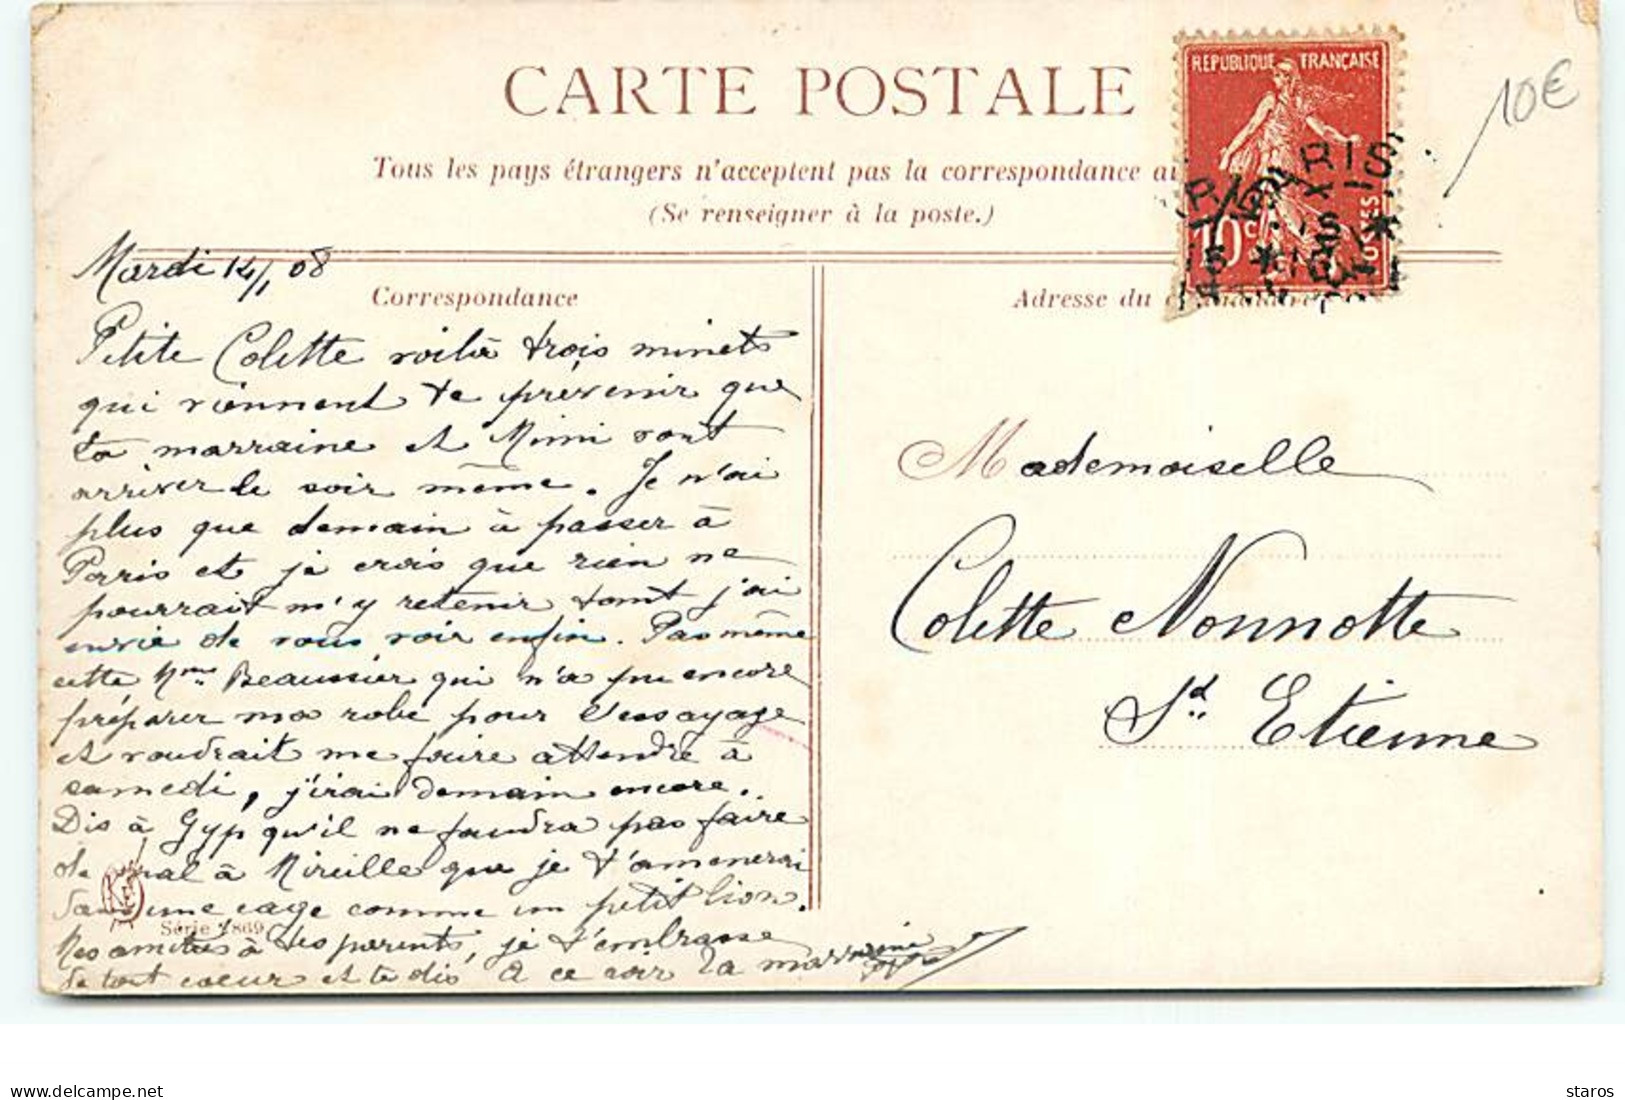 CARTE POSTALE
RÉPUBLIQUE FRANÇAISE
10€
Tous les pays étrangers n'acceptent pas la correspondance au
(Se renseigner à la poste.)
PARIS
10c
POSTES
Mardi 14/1 08
Correspondance
Adresse du
Petite Colette voilà trois minets
qui viennent te prévenir que
ta marraine et Mimi vont
arriver le soir même. Je n'ai
plus que demain à passer à
Paris et je crois que rien ne
pourrait m'y retenir tant j'ai
envie de vous voir enfin. Pas même
cette Mme Beaussier qui n'a pu encore
préparer ma robe pour l'essayage
et voudrait me faire attendre à
samedi, j'irai demain encore.
Dis à Gyp qu'il ne faudra pas faire
de mal à Mireille que je t'amenerai
dans une cage comme un petit lion.
Série 1869
Mes amitiés à tes parents, je t'embrasse
de tout coeur et te dis à ce soir Ta marraine
Mademoiselle
Colette Nonnotte
Sd. Etienne
delcampe.net
staros